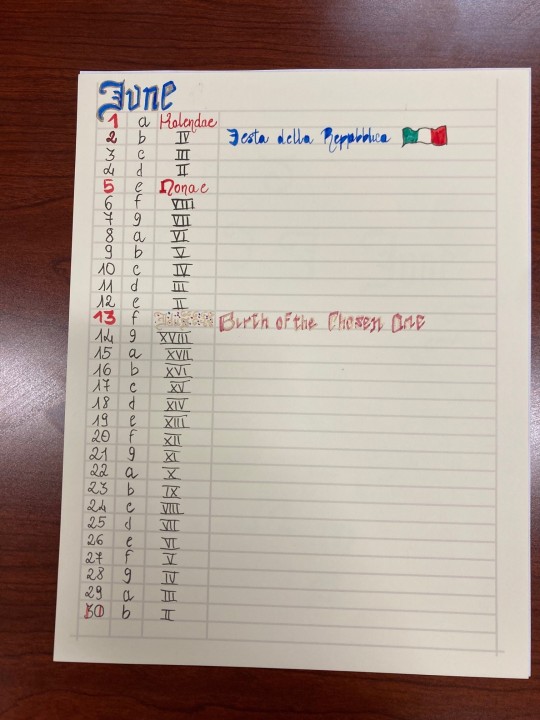 June
1 a Kalendae
2 b IV Festa della Reppubblica
3 c III
4 d II
5 e Nonae
6 f VIII
7 g VII
8 a VI
9 b V
10 c IV
11 d III
12 e II
13 f Birth of the Chosen One
14 g XVIII
15 a XVII
16 b XVI
17 c XV
18 d XIV
19 e XIII
20 f XII
21 g XI
22 a X
23 b IX
24 c VIII
25 d VII
26 e VI
27 f V
28 g IV
29 a III
30 b II